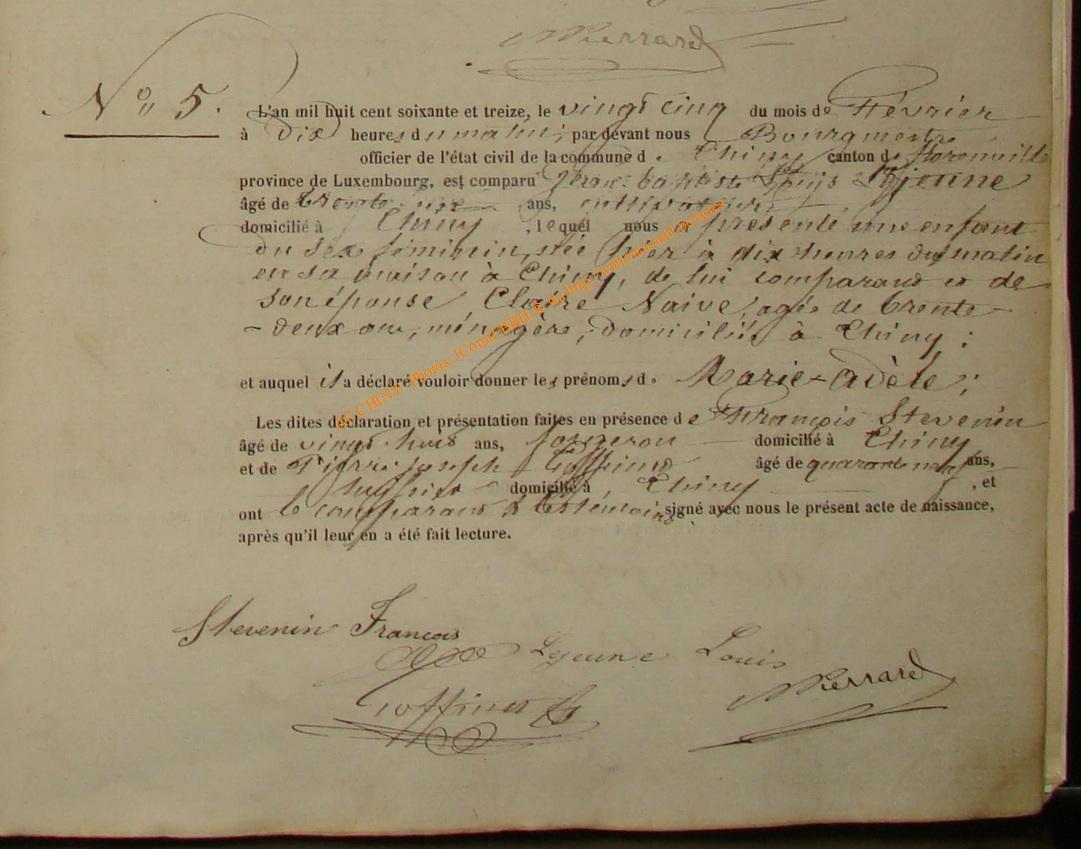 NPierrard
N° 5.
L'an mil huit cent soixante et treize, le vingt cinq du mois de Février
à Dix heures du matin, par devant nous Bourgmestre
officier de l'état civil de la commune de Chiny canton de Florenville
province de Luxembourg, est comparu Jean-baptiste Louis Lejeune
âgé de trente ans, cultivateur,
domicilié à Chiny, lequel nous a présenté une enfant
du sex féminin, née hier à dix heures du matin
en sa maison à Chiny, de lui comparant et de
son épouse Claire Naive, agée de trente
-deux ans, ménagère, domiciliés à Chiny;
et auquel il a déclaré vouloir donner les prénoms de Marie-Adèle;
Les dites déclaration et présentation faites en présence de François Stevenin
âgé de vingt huit ans, forgeron domicilié à Chiny
et de Pierre Joseph Goffinet âgé de quarante neuf ans,
domicilié à Chiny, et
ont le comparant & les témoins signé avec nous le présent acte de naissance,
après qu'il leur en a été fait lecture.
Stevenin François
Lejeune Louis
Goffinet
NPierrard